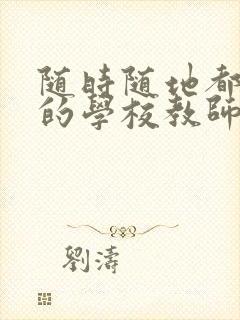 随時随地都
的學校教師
劉濤